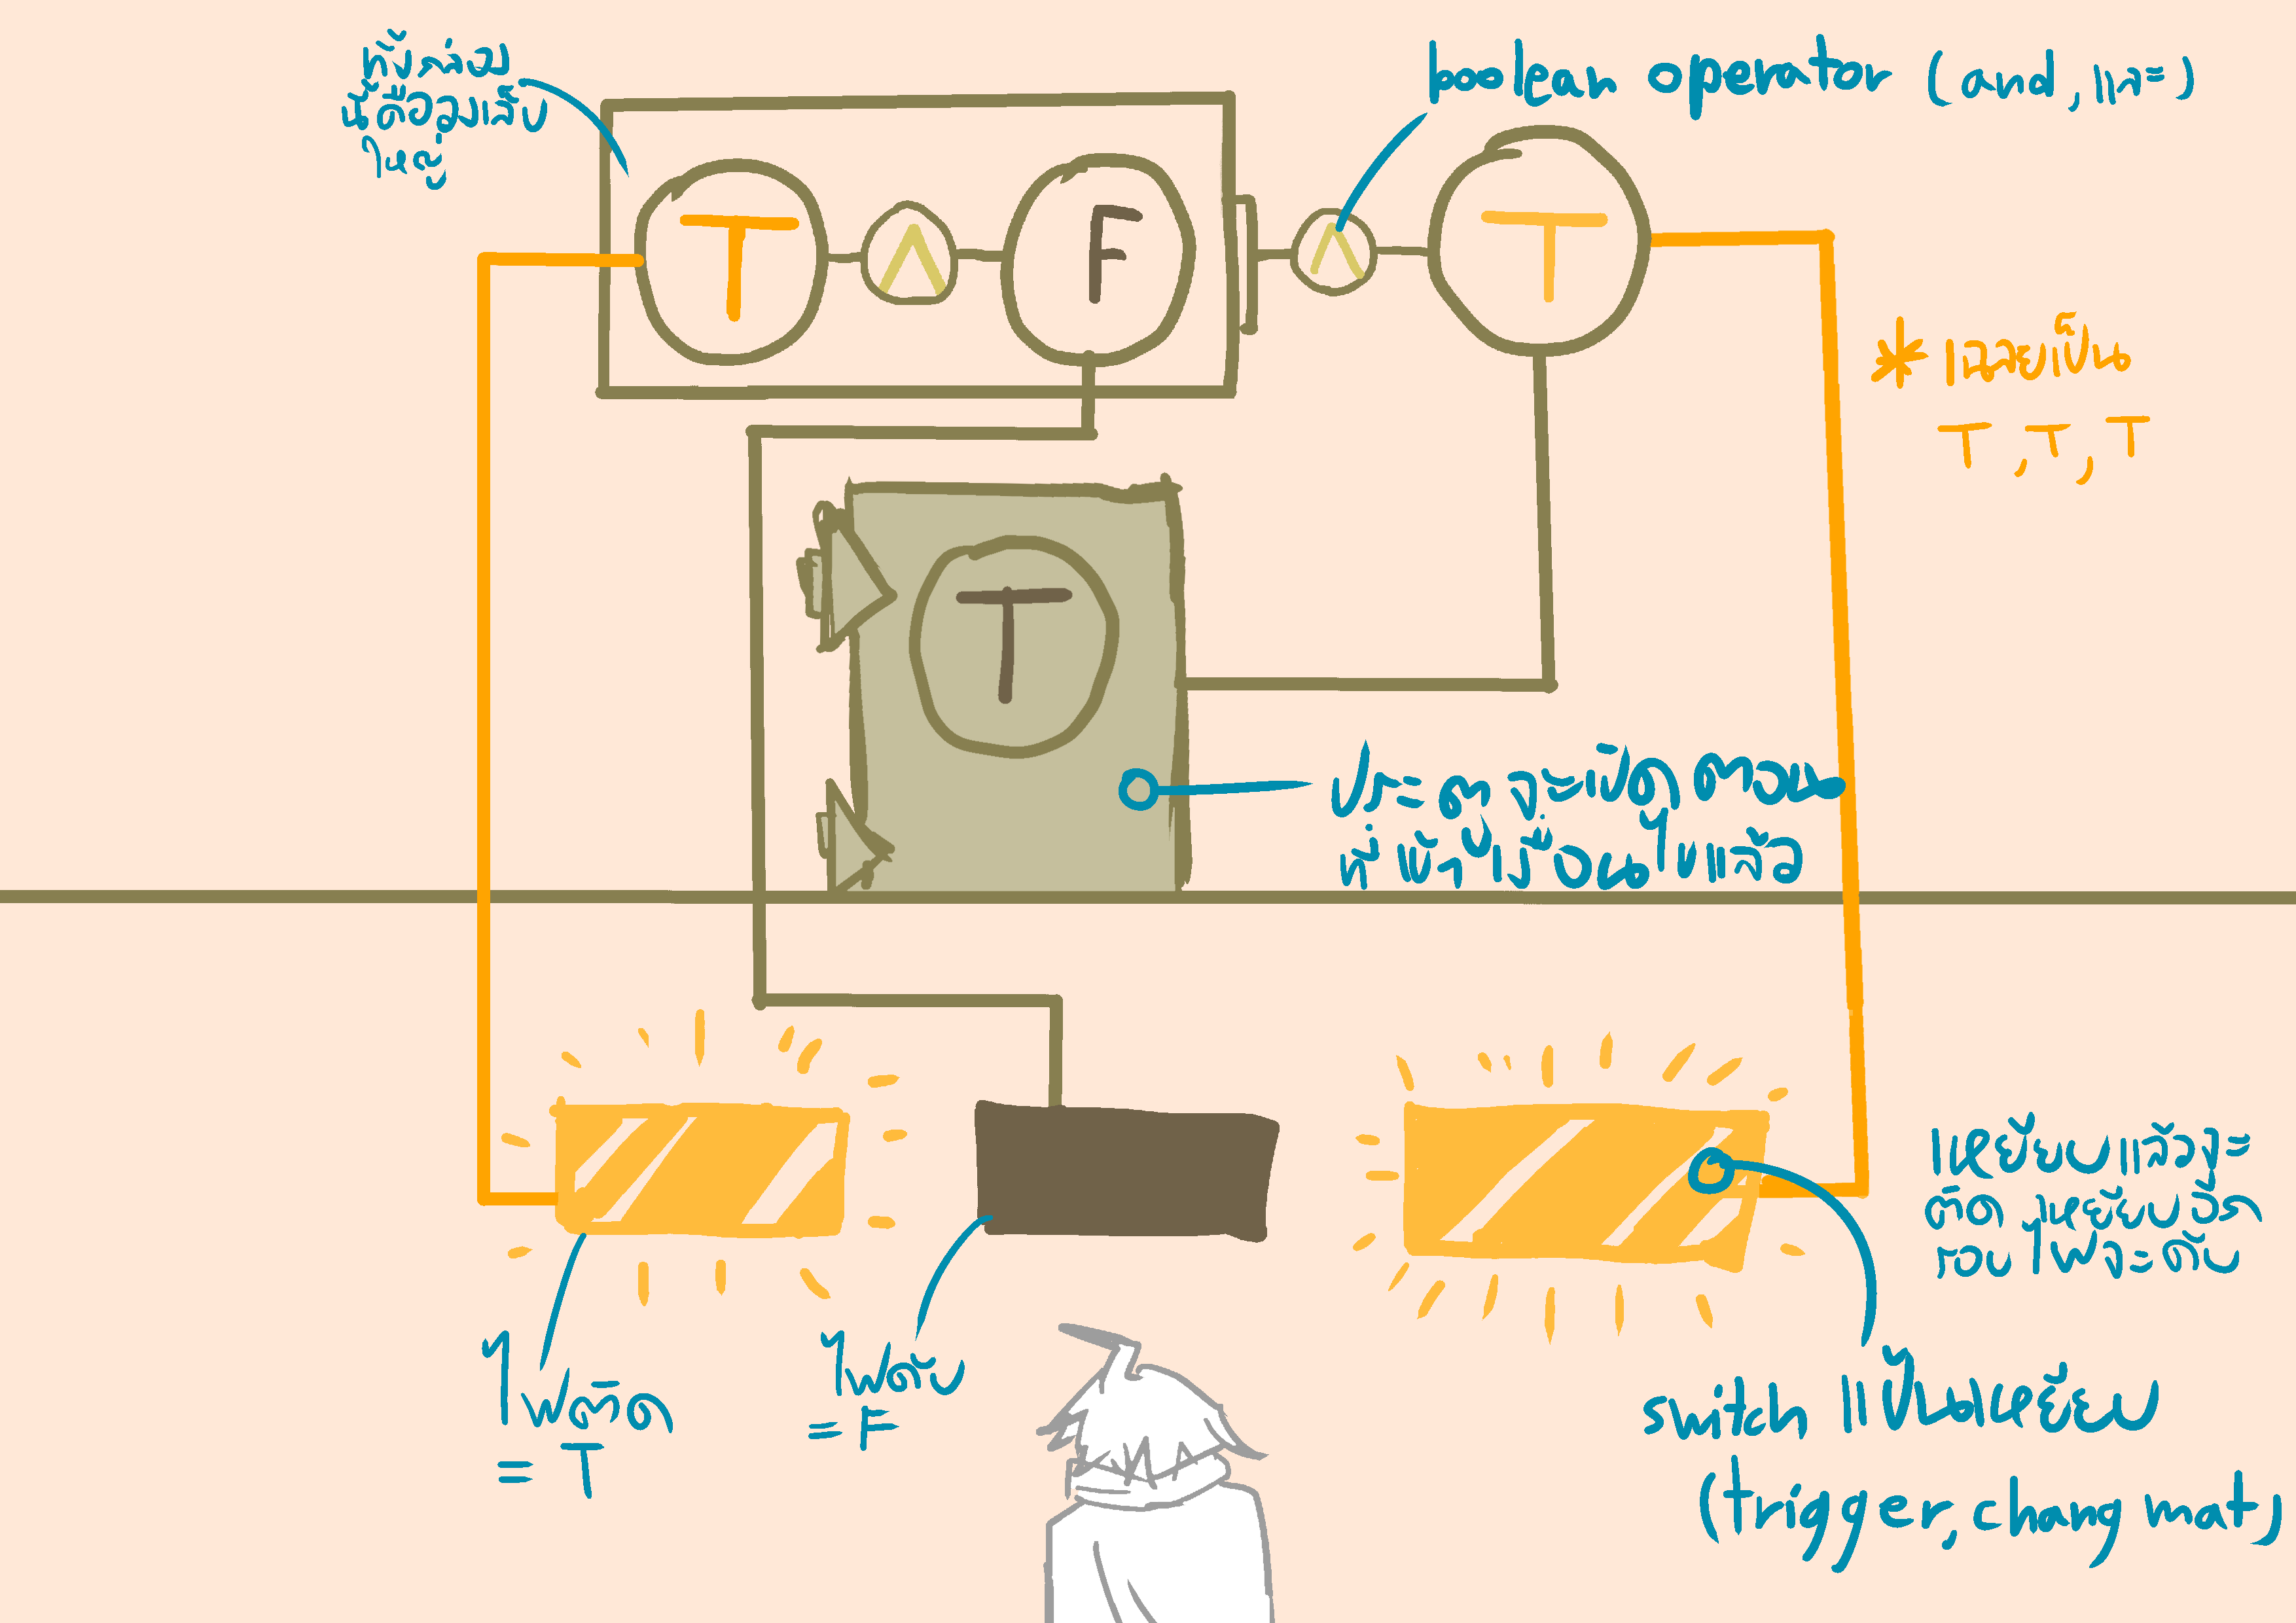 ทั้งกล่อง
นี้คือวงเล็บ
ใหญ่
boolean operator (and, และ)
T ∧ F ∧ T
* เฉลยเป็น
T, T, T
T
ประตูจะเปิดตอน
ที่เข้าเงื่อนไขแล้ว
เหยียบแล้วจะ
ติด เหยียบอีก
รอบไฟจะดับ
ไฟติด
= T
ไฟดับ
= F
switch แป้นเหยียบ
(trigger, chang mat)